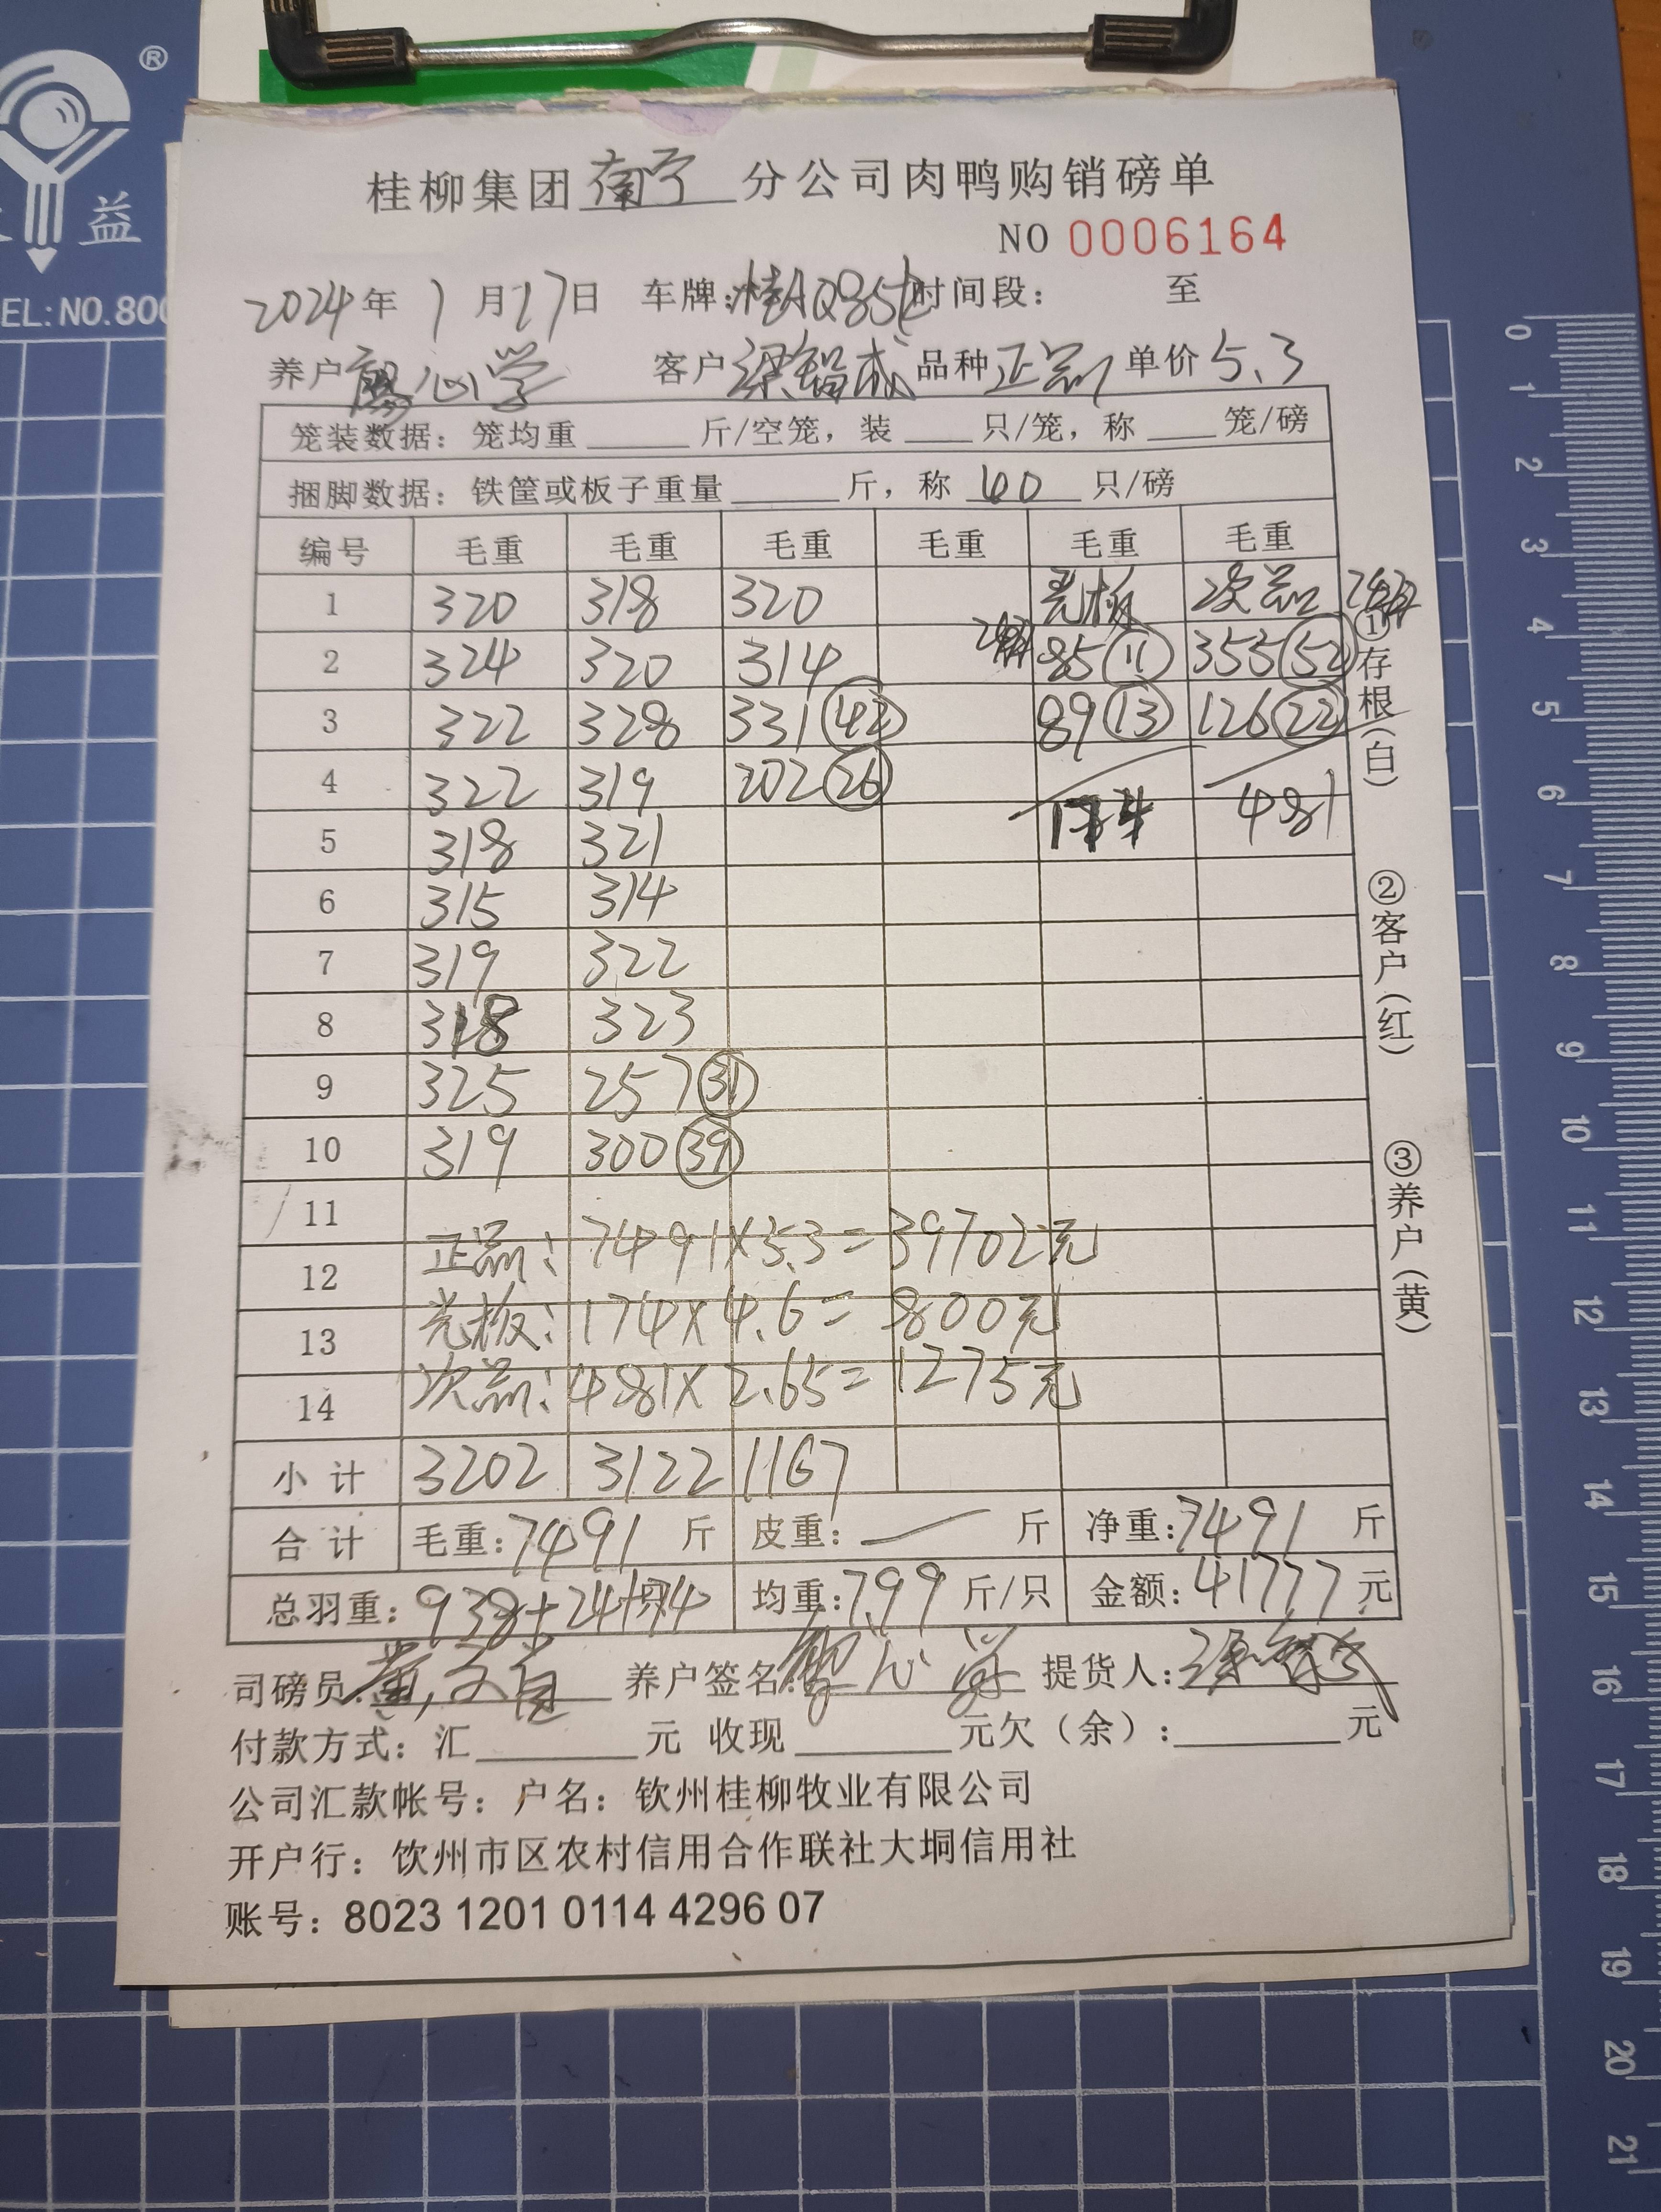 ®
益
EL:NO.800
桂柳集团 南宁 分公司肉鸭购销磅单
NO 0006164
2024年 1月17日 车牌: 时间段: 至
养户 心学 客户 梁 成 品种 正品 单价 5.3
笼装数据: 笼均重 斤/空笼, 装 只/笼, 称 笼/磅
捆脚数据: 铁筐或板子重量 斤, 称 40 只/磅
编号 毛重 毛重 毛重 毛重 毛重 毛重
1 320 318 320 光板 次品
2 324 320 314 85 (11) 355 (52)
3 322 328 331 (42) 89 (13) 126 (22)
4 322 319 202 (26)
5 318 321 174 481
6 315 314
7 319 322
8 318 323
9 325 257 (31)
10 319 300 (39)
11
12 正品: 7491×5.3=39702元
13 光板: 174×4.6=800元
14 次品: 481×2.65=1275元
小计 3202 3122 1167
合计 毛重: 7491 斤 皮重: — 斤 净重: 7491 斤
总羽重: 938+24+74 均重: 7.99 斤/只 金额: 41777 元
司磅员: 养户签名: 提货人:
付款方式: 汇 元 收现 元欠(余): 元
公司汇款帐号: 户名: 钦州桂柳牧业有限公司
开户行: 饮州市区农村信用合作联社大垌信用社
账号: 8023 1201 0114 4296 07
①存根(白)
②客户(红)
③养户(黄)
0
1
2
3
4
5
6
7
8
9
10
11
12
13
14
15
16
17
18
19
20
21